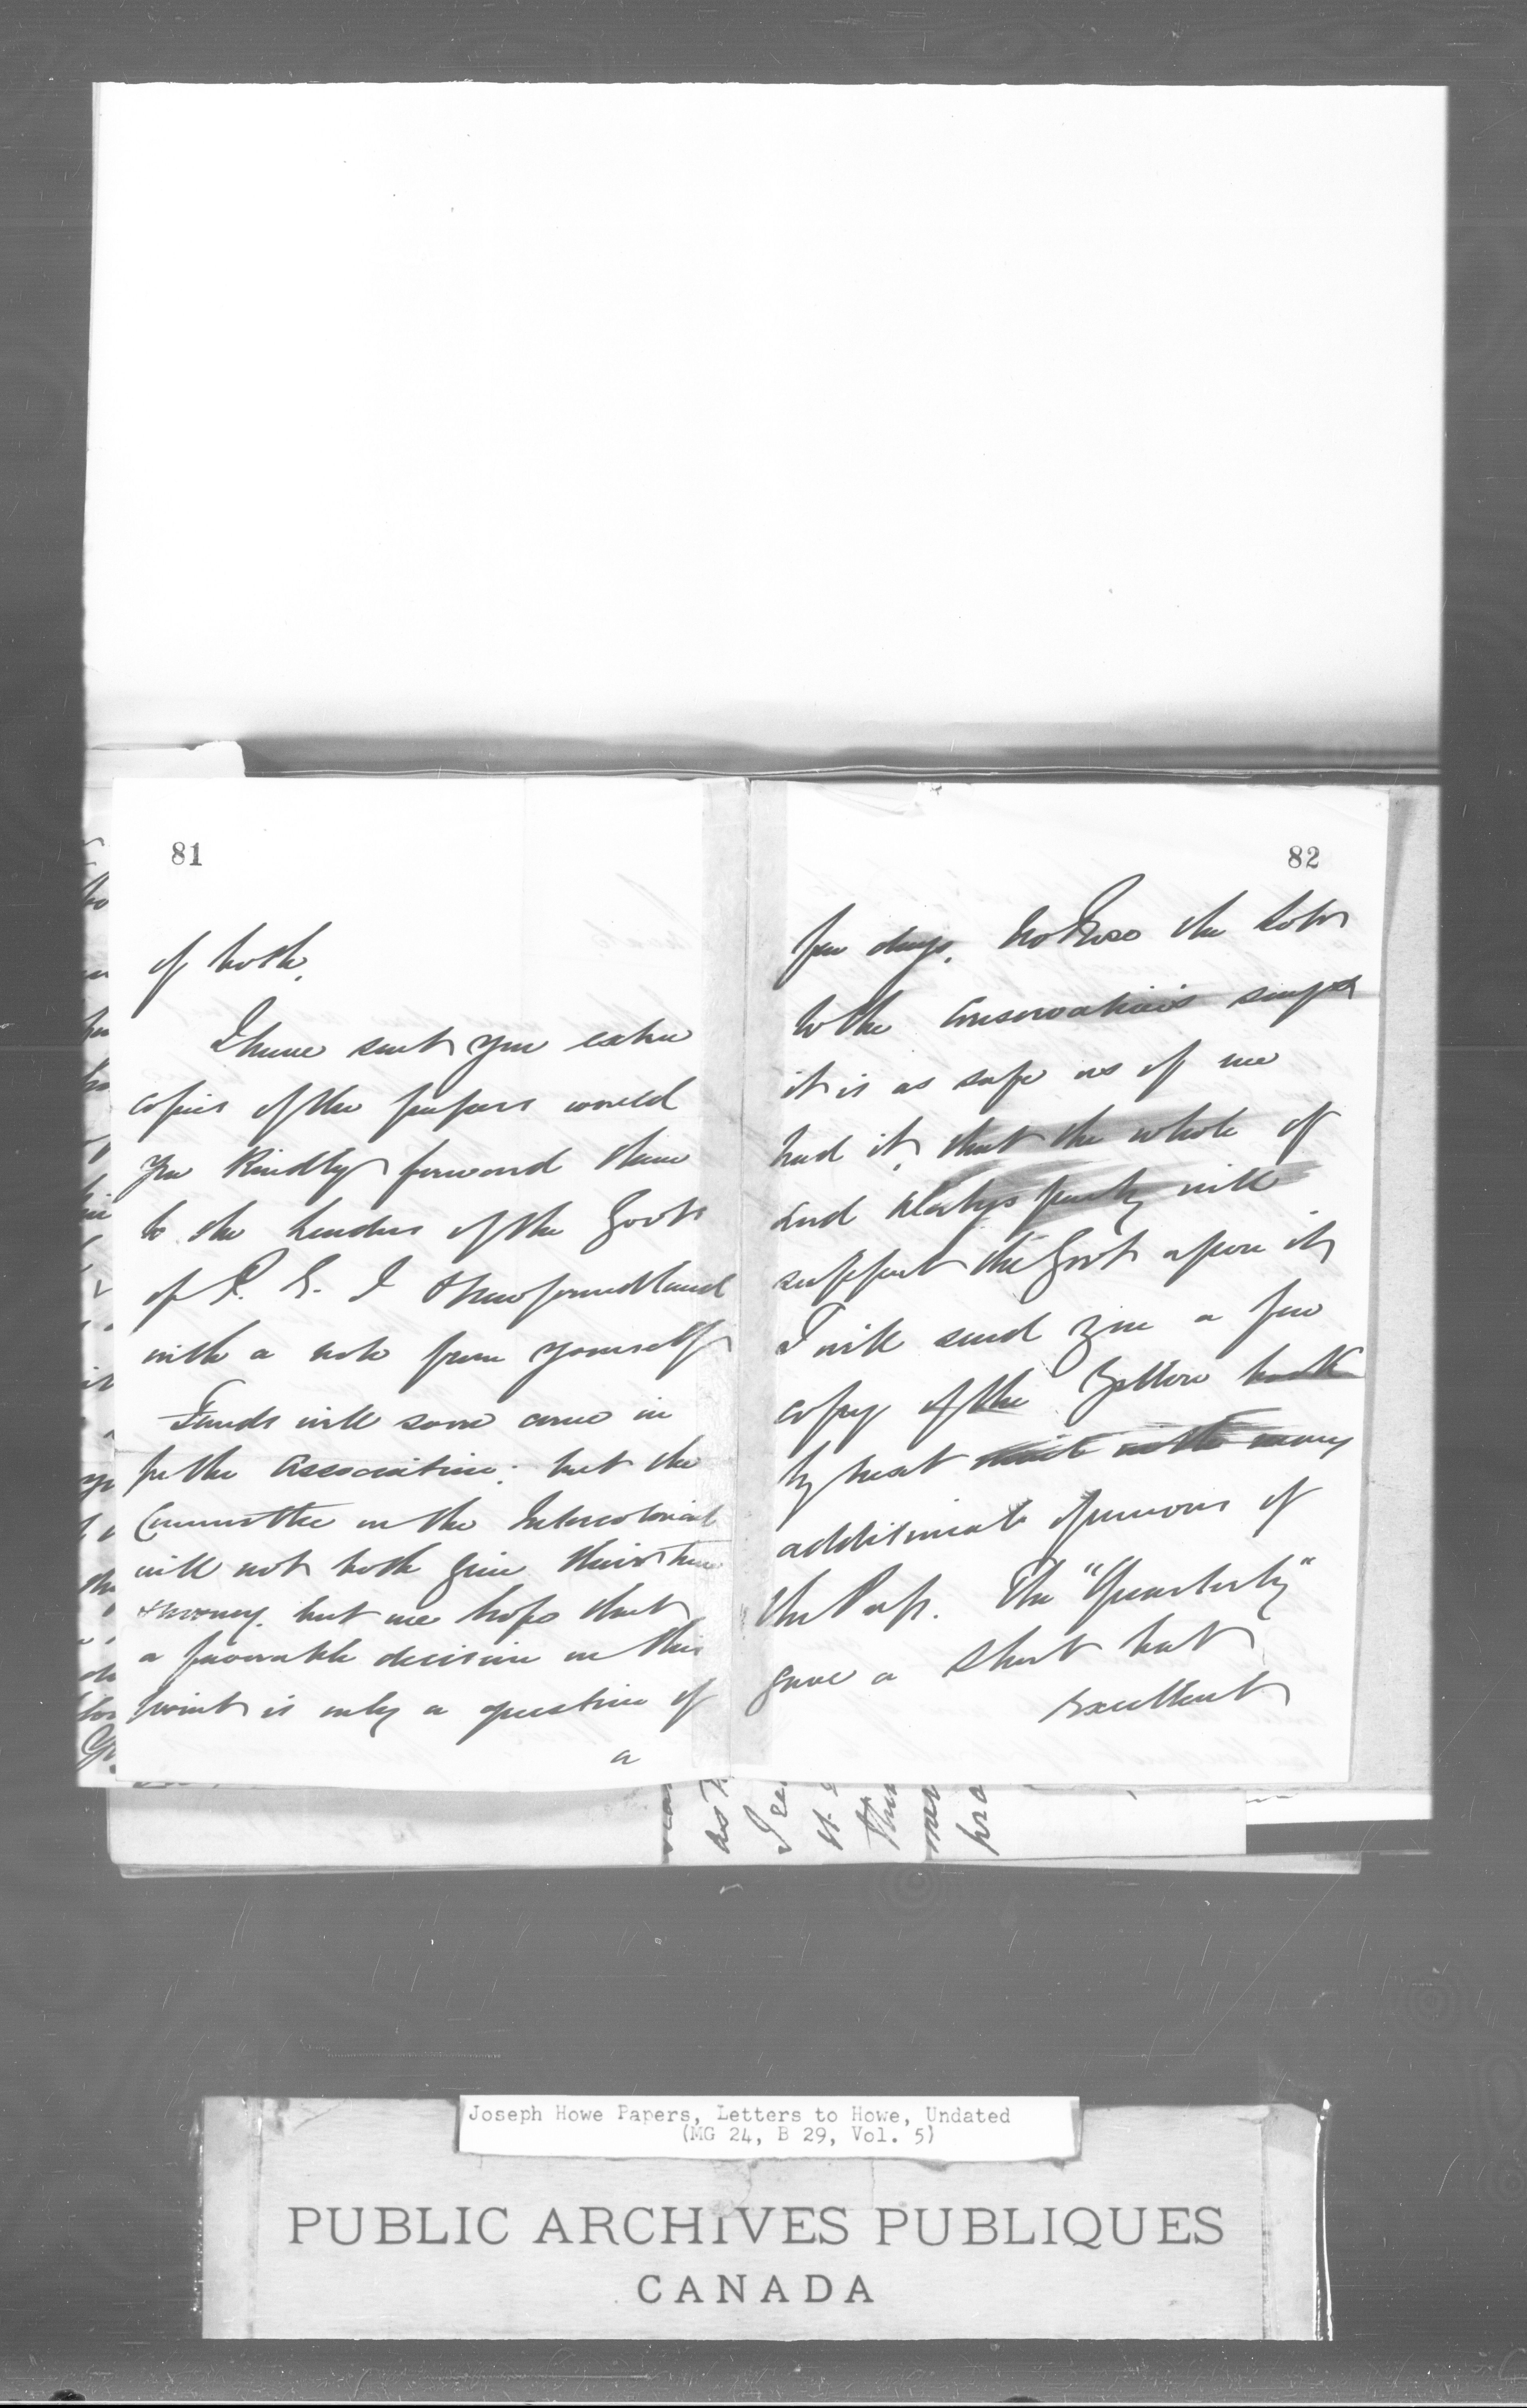 81
of both.
I have sent you extra
copies of the papers would
you kindly forward them
to the Leaders of the Govt
of P. E. I & Newfoundland
with a note from yourself
Funds will soon come in
for the Association: but the
Committee on the Intercolonial
will not both give their time
& money. but we hope that
a favorable decision on this
point is only a question of
a
82
few days. the
to the Conservatives
it is as safe as if we
had it, that the whole of
and party will
support the Govt upon it
I will send you a few
copy of the Yellow book
by next many
additional opinions of
the Press. The "Quarterly"
gave a short but
excellent
Joseph Howe Papers, Letters to Howe, Undated
(MG 24, B 29, Vol. 5)
PUBLIC ARCHIVES PUBLIQUES
CANADA